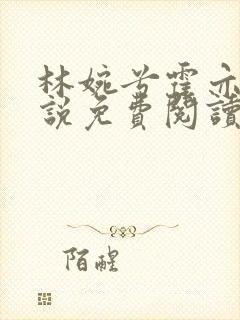 林婉兮霍亦
說免費閱讀
陌醒